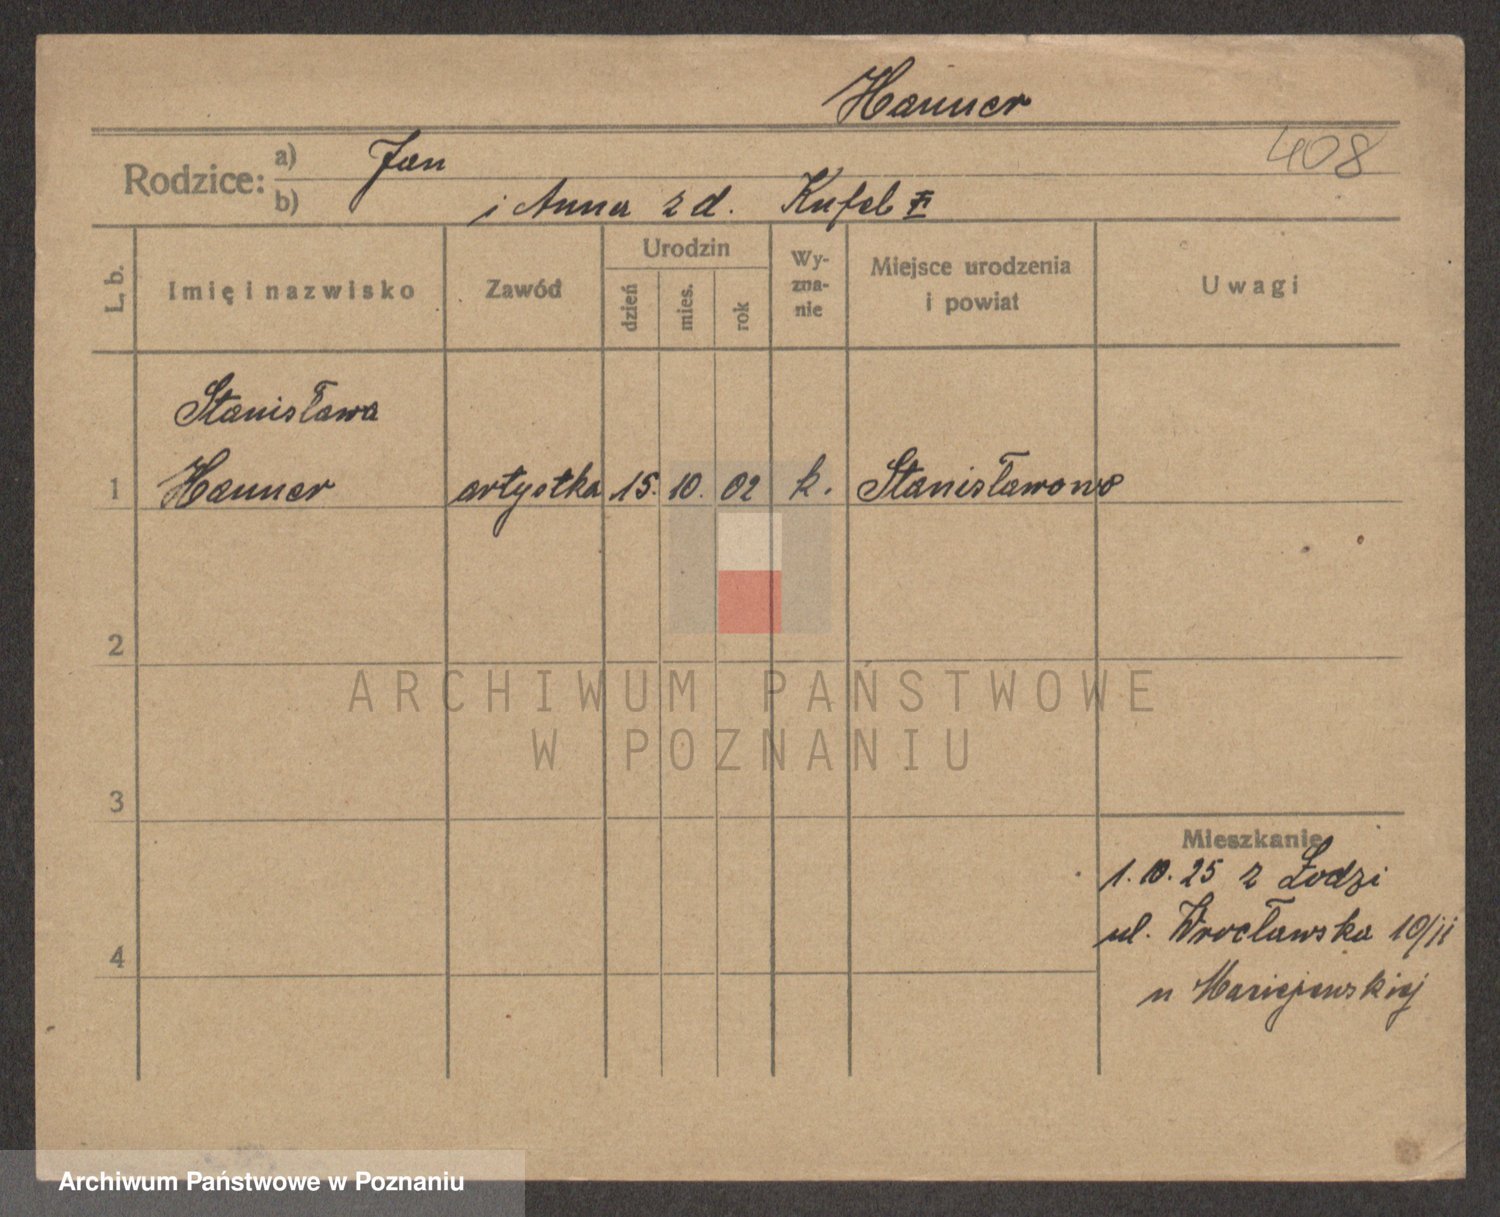 Hanner
408
Rodzice: a) Jan
b) i Anna z d. Kufel
L. b.
Imię i nazwisko
Zawód
Urodzin
dzień
mies.
rok
Wy-
zna-
nie
Miejsce urodzenia
i powiat
Uwagi
Stanisława
1 Hanner artystka 15. 10. 02 k. Stanisławowo
2
3
4
Mieszkanie
1.10.25 z Łodzi
ul. Wrocławska 10/II
u Maciejewskiej
ARCHIWUM PAŃSTWOWE
W POZNANIU
Archiwum Państwowe w Poznaniu